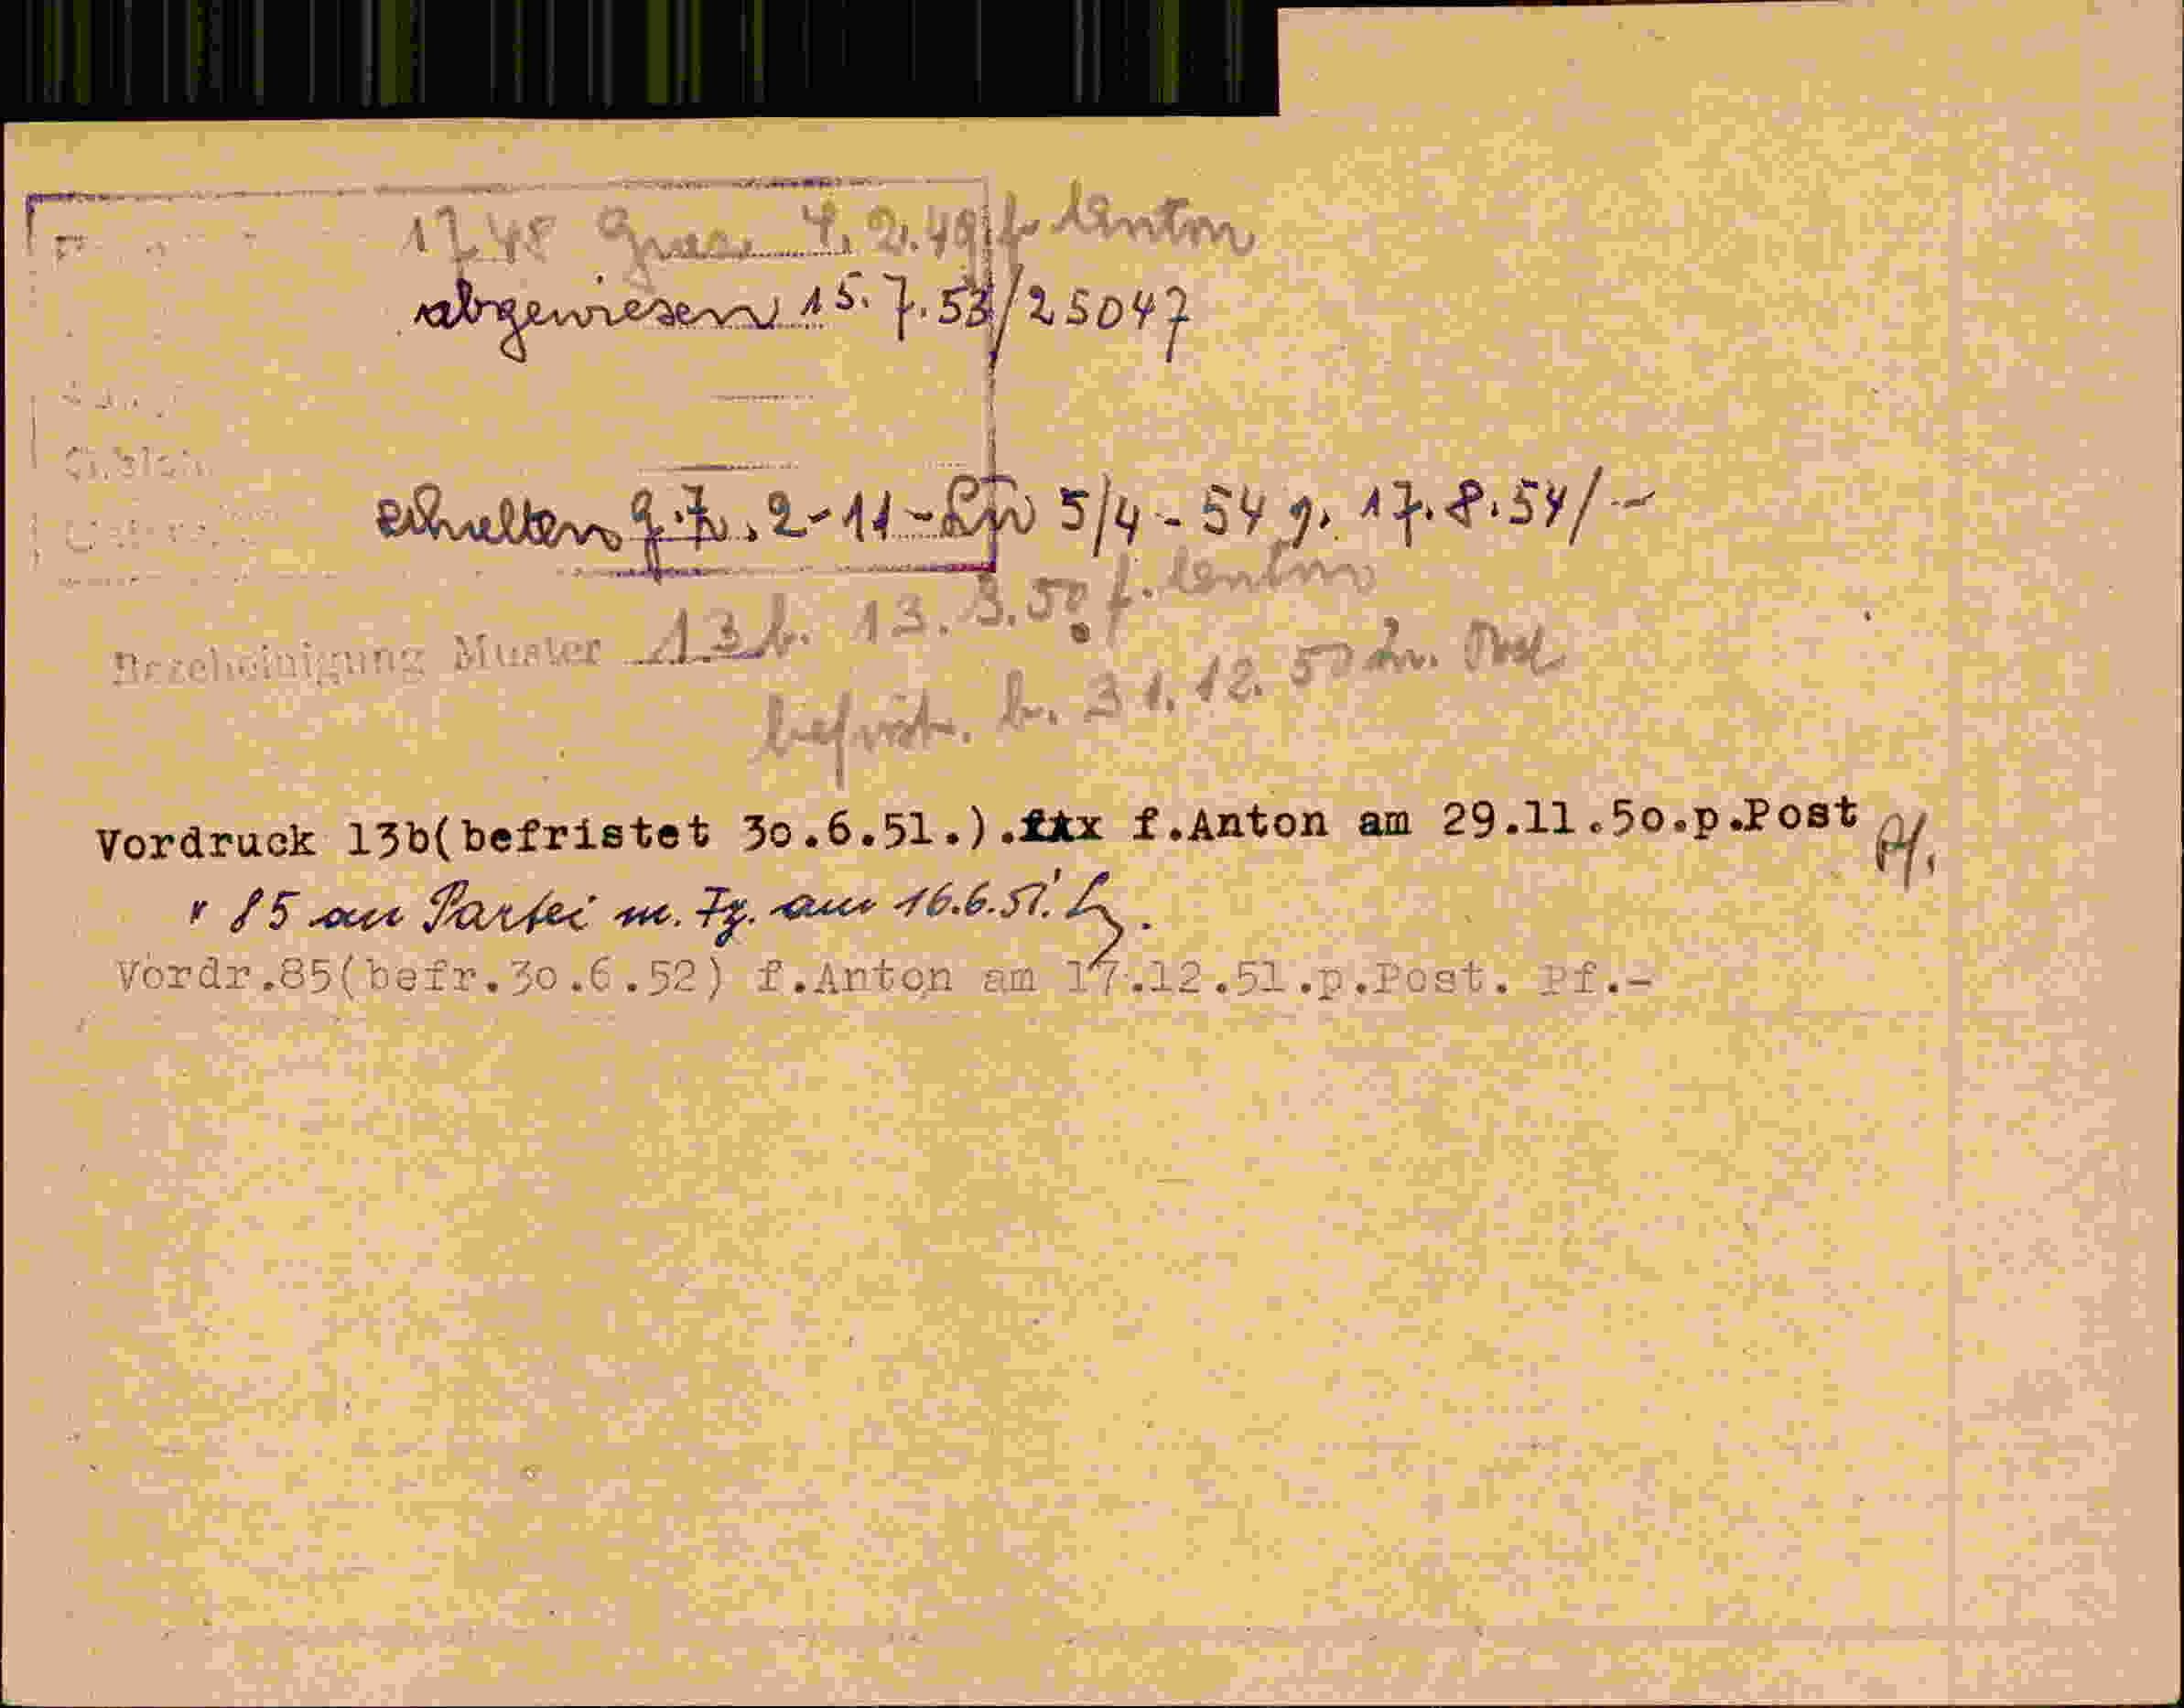 1748 4.2.49 f. Anton
abgewiesen 15.7.53/25047
erhalten g.F. 2-11-Lw 5/4-54 g. 17.8.54/--
Bescheinigung Muster 13b. 13.3.50 f. Anton
befrist. b. 31.12.50 Post
Vordruck 13b(befristet 30.6.51.). f.Anton am 29.11.50.p.Post Pf.
" 85 an Partei m. Fg. am 16.6.51.
Vordr.85(befr.30.6.52) f.Anton am 17.12.51.p.Post. Pf.-